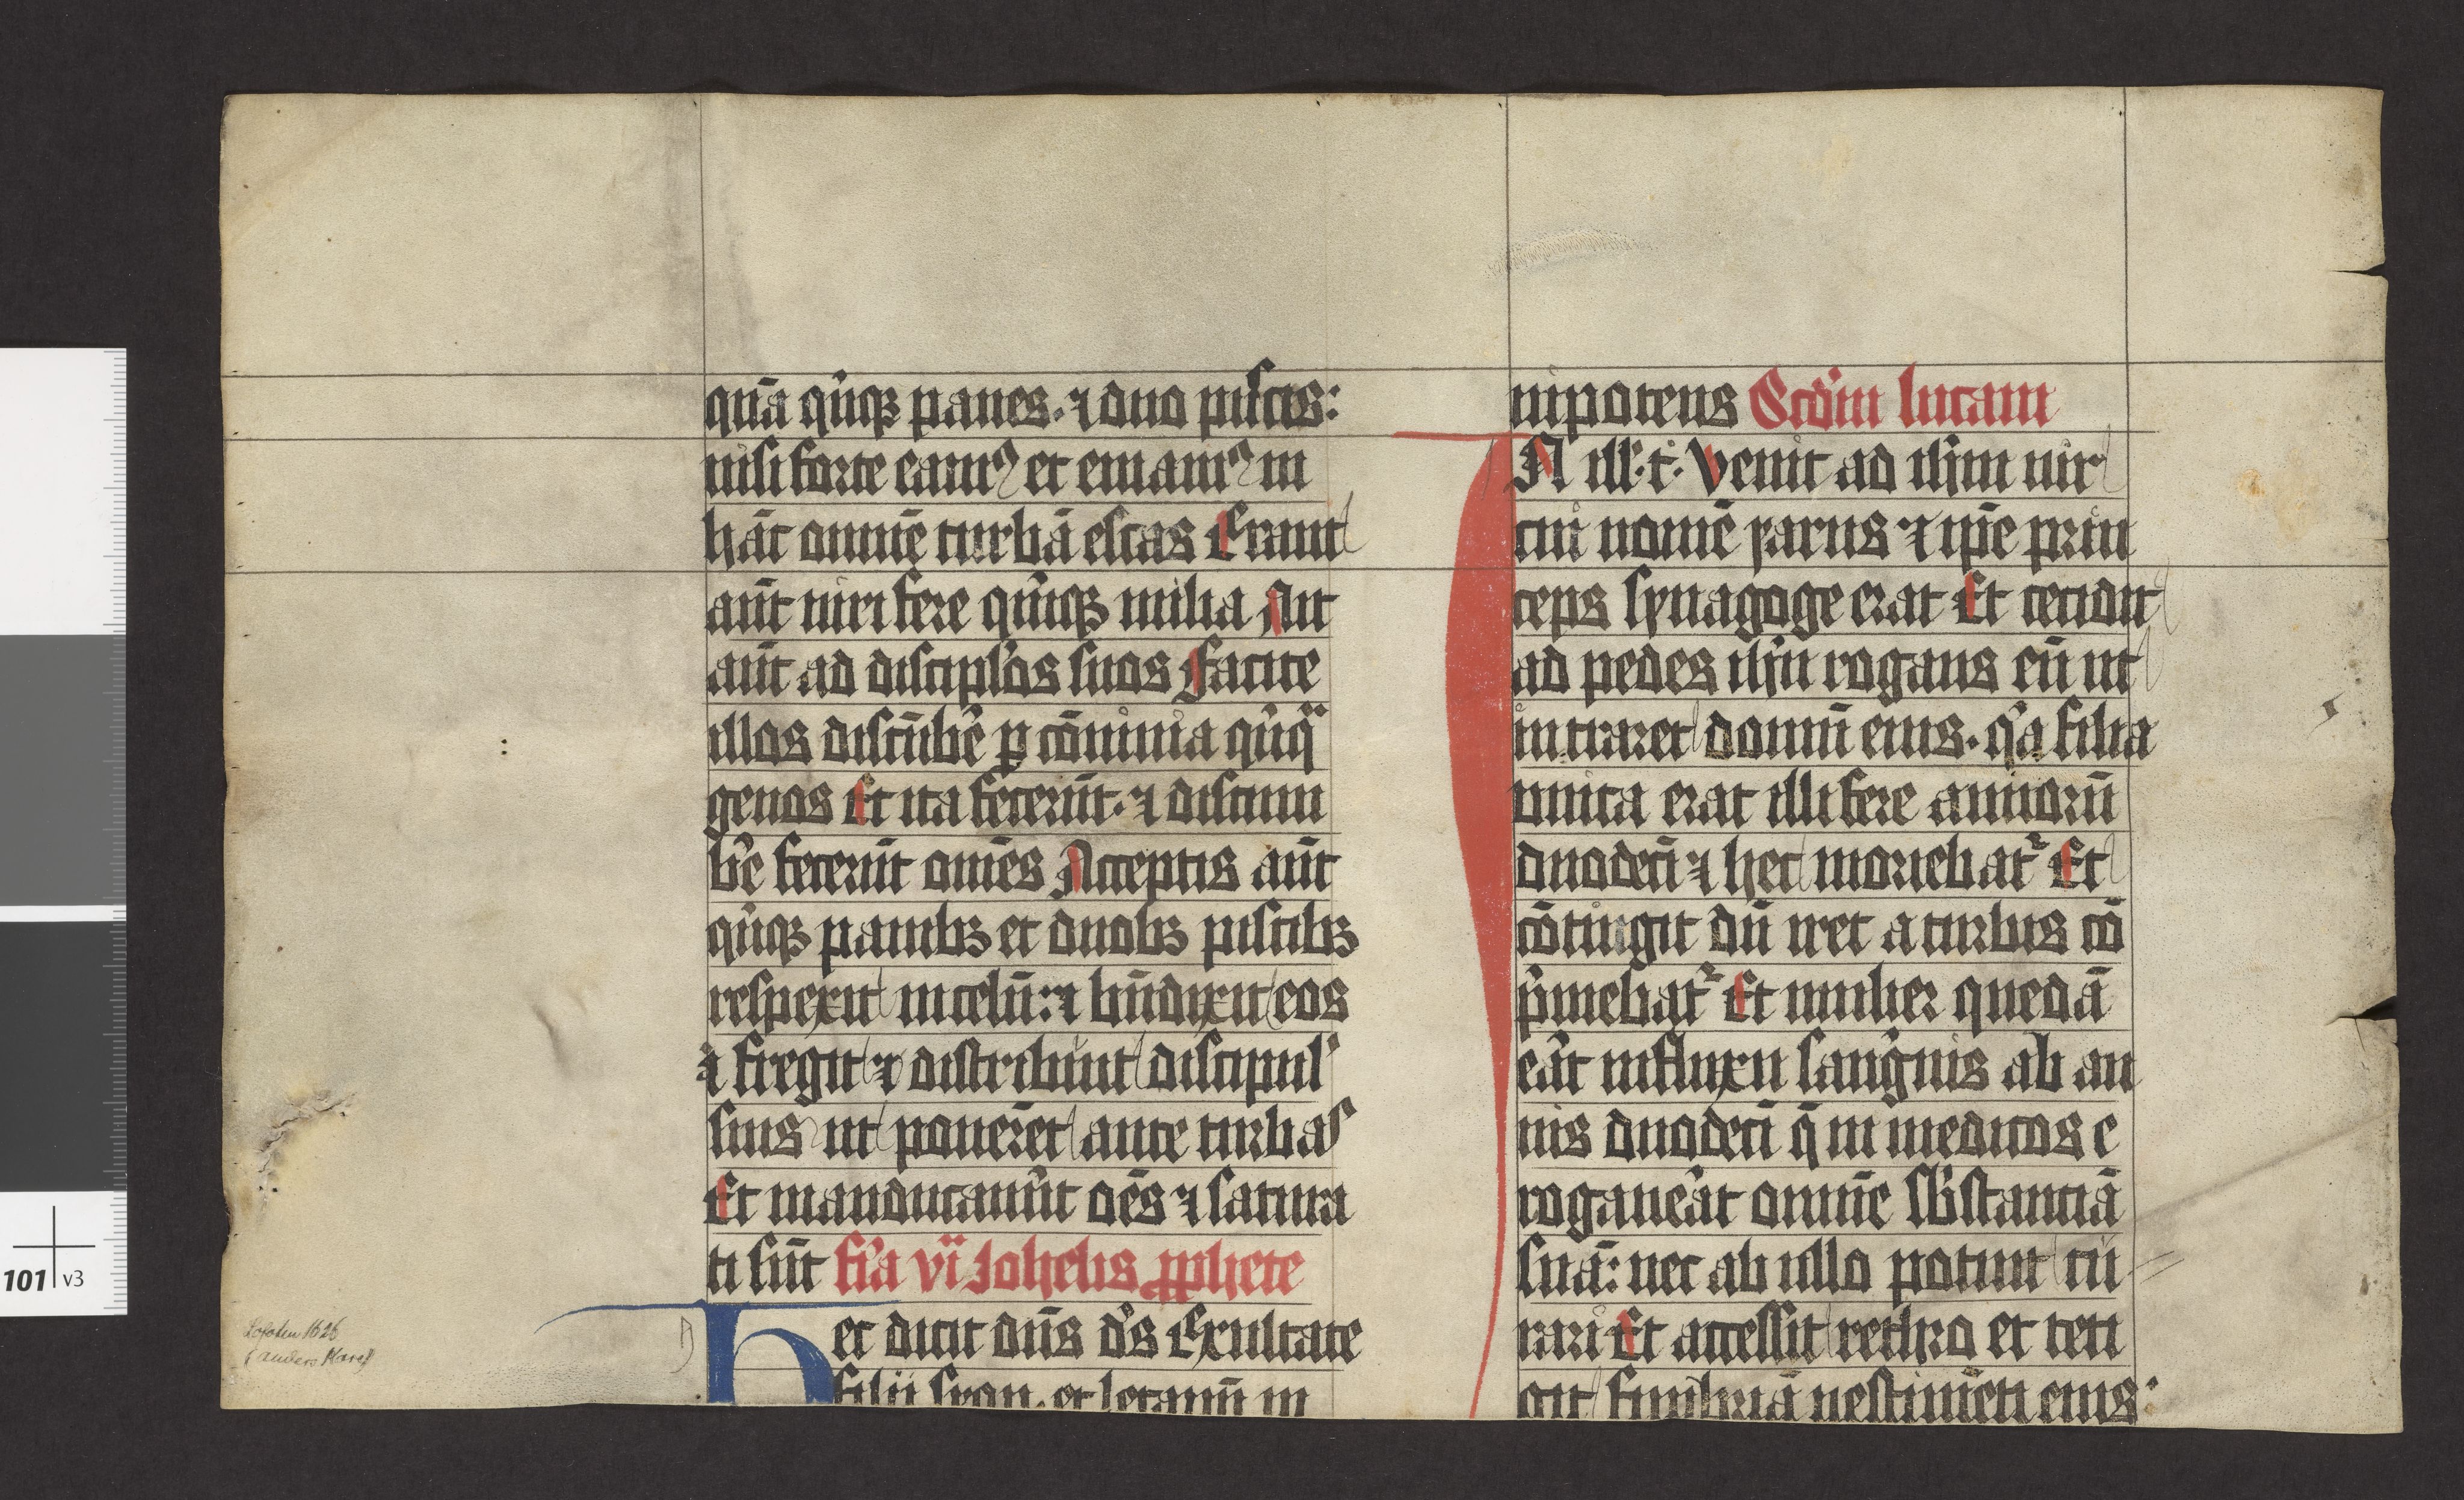 qua̅ qi̍nqꝫ panes. ⁊ duo pisces:
nisi forte eamꝰ et emamꝰ in
ha̅c omne̅ turba̅ escas Erant
au̅t uiri fere qi̍nqꝫ milia Ait
au̅t ad discipl̍os suos Facite
illos discu̅be̍ ꝑ co̅uiuia qi̍nq̈
genos Et ita feceru̅t. ⁊ discum
be̍ feceru̅t om̅es Acceptis au̅t
qi̍nqꝫ panibꝫ et duobꝫ piscibꝫ
respexit in celu̅: ⁊ bn̅dixit eos
⁊ fregit ⁊ distribuit discipul̍
suis ut poneret ante turbas
Et manducaueru̅t oe̅s ⁊ satura
ti su̅t fr̍a vï Johelis ꝓphete
Hec dicit dn̅s ds̍ Exultate
filii syon. et letamini̅ in
nipotens Scd̍m lucam
IN ill̍. t̍. Venit ad ih̅m uir
cui nome̅ yarus ⁊ ip̅e prin
ceps synagoge erat Et cecidit
ad pedes ih̅u rogans eu̅ ut
intraret domu̅ eius. qi̍a filia
unica erat illi fere annoru̅
duodeci̅ ⁊ hec moriebat᷑ Et
co̅tingit du̅ iret a turbis co̅
p̍mebat᷑ Et mulier queda̅
era̍t in fluxu sangi̍nis ab an
nis duodeci̅ q̅ in medicos e
rogauera̍t omne̅ sb̍stantia̅
sua̅: nec ab ullo potuit cu̅
rari Et accessit rethro et teti
git fimbria̅ uestime̅ti eius:
101 v3
Lofoten 1626
(anders Mare)